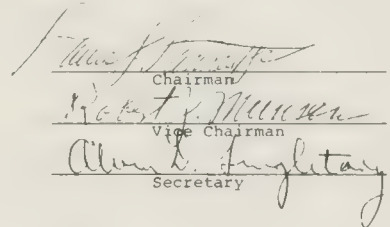 Chairman
Robert J. Munson
Vice Chairman
Alvin D. Singletary
Secretary